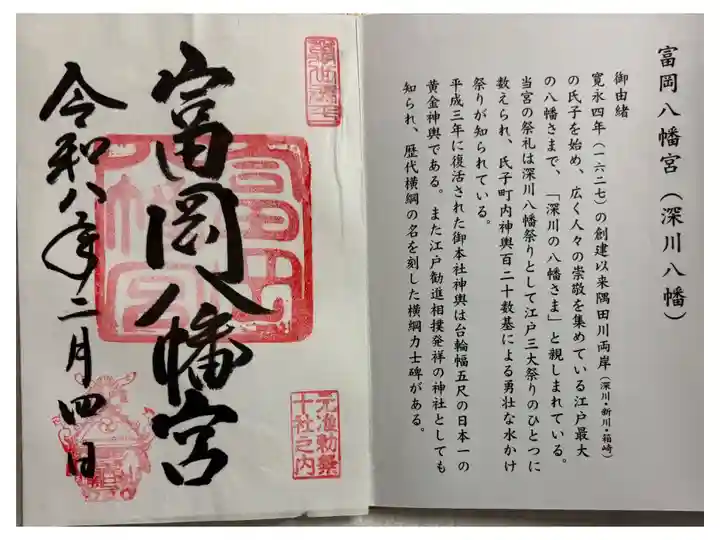 富岡八幡宮(深川八幡)
御由緒
寛永四年(一六二七)の創建以来隅田川両岸(深川・新川・箱崎)
の氏子を始め、広く人々の崇敬を集めている江戸最大
の八幡さまで、「深川の八幡さま」と親しまれている。
当宮の祭礼は深川八幡祭りとして江戸三大祭りのひとつに
数えられ、氏子町内神輿百二十数基による勇壮な水かけ
祭りが知られている。
平成三年に復活された御本社神輿は台輪幅五尺の日本一の
黄金神輿である。また江戸勧進相撲発祥の神社としても
知られ、歴代横綱の名を刻した横綱力士碑がある。
元准勅祭
十社之内
富岡八幡宮
富岡
八幡宮
令和八年二月四日